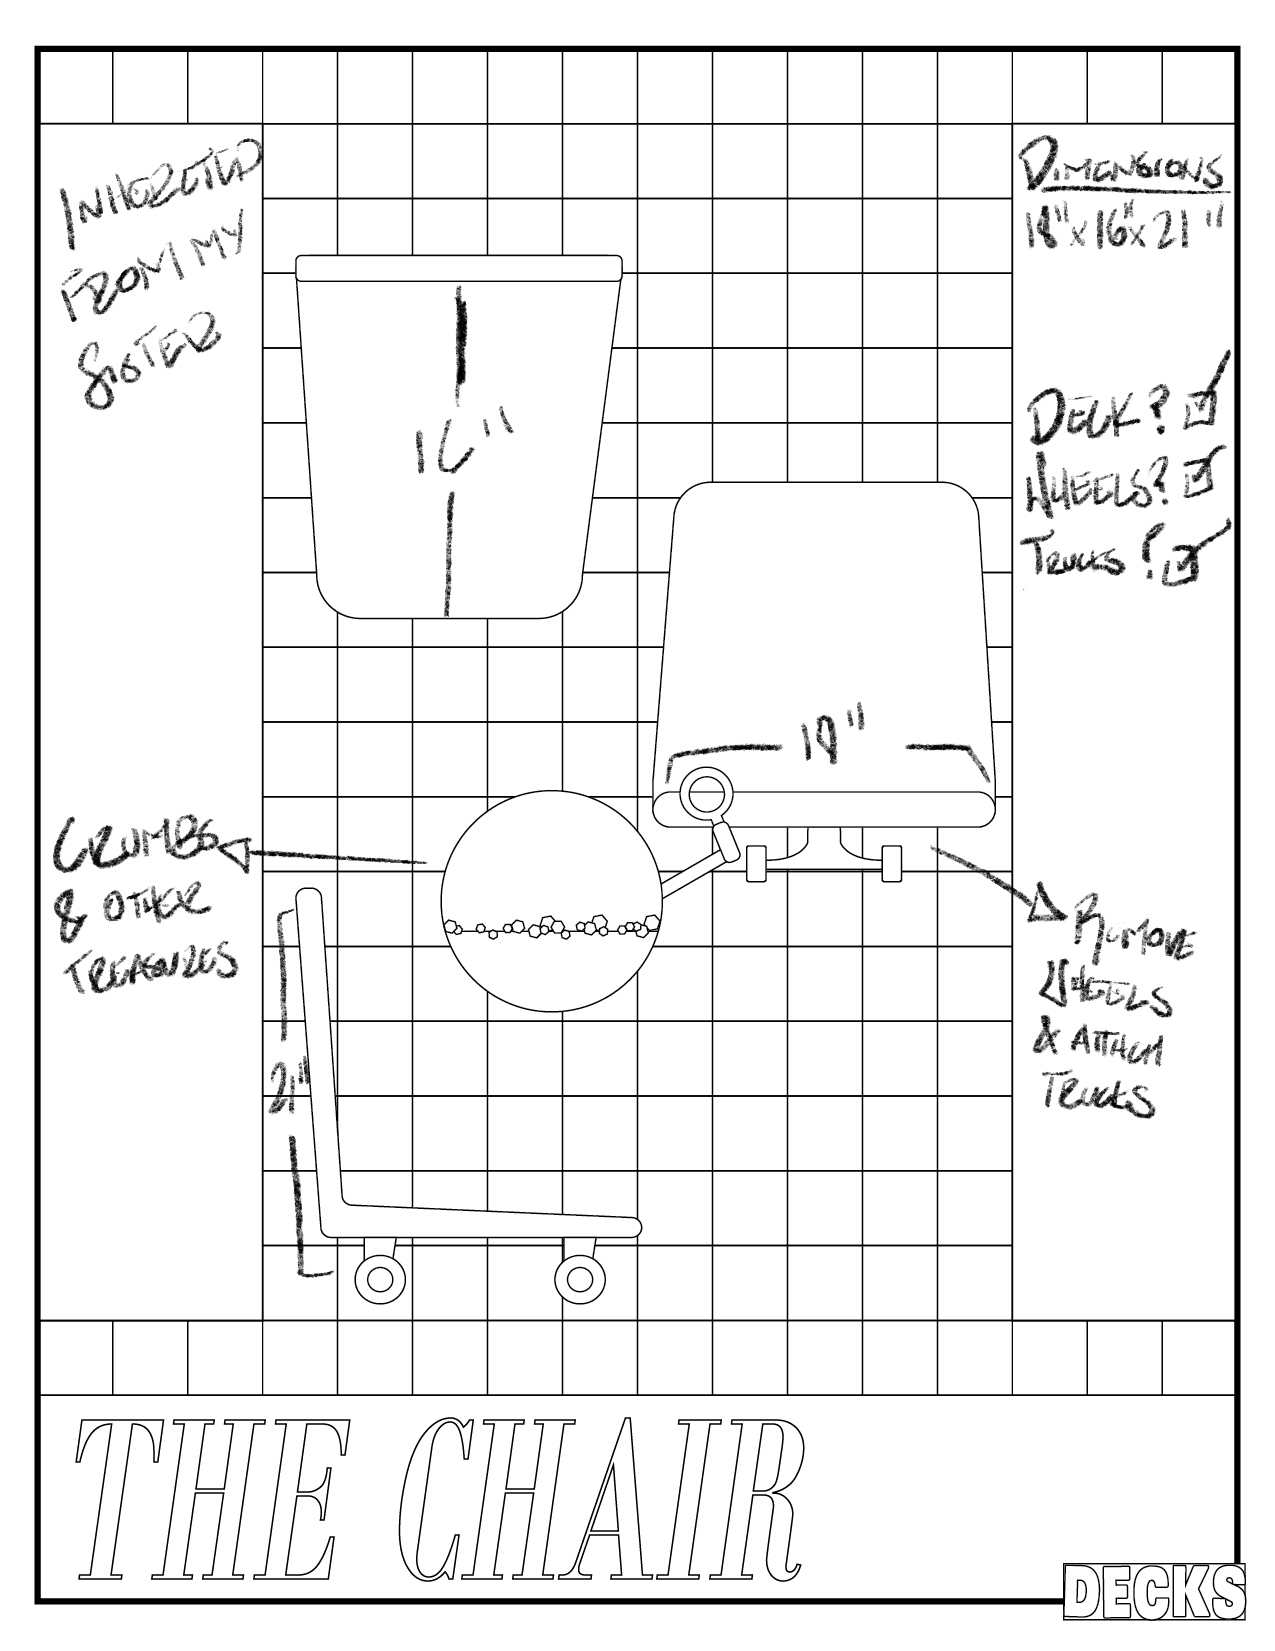 INHERETED
FROM MY
SISTER
DIMENSIONS
18"x16"x21"
DECK?
WHEELS?
TRUCKS?
16"
18"
CRUMBS
& OTHER
TREASURES
REMOVE
WHEELS
& ATTACH
TRUCKS
21"
THE CHAIR
DECKS